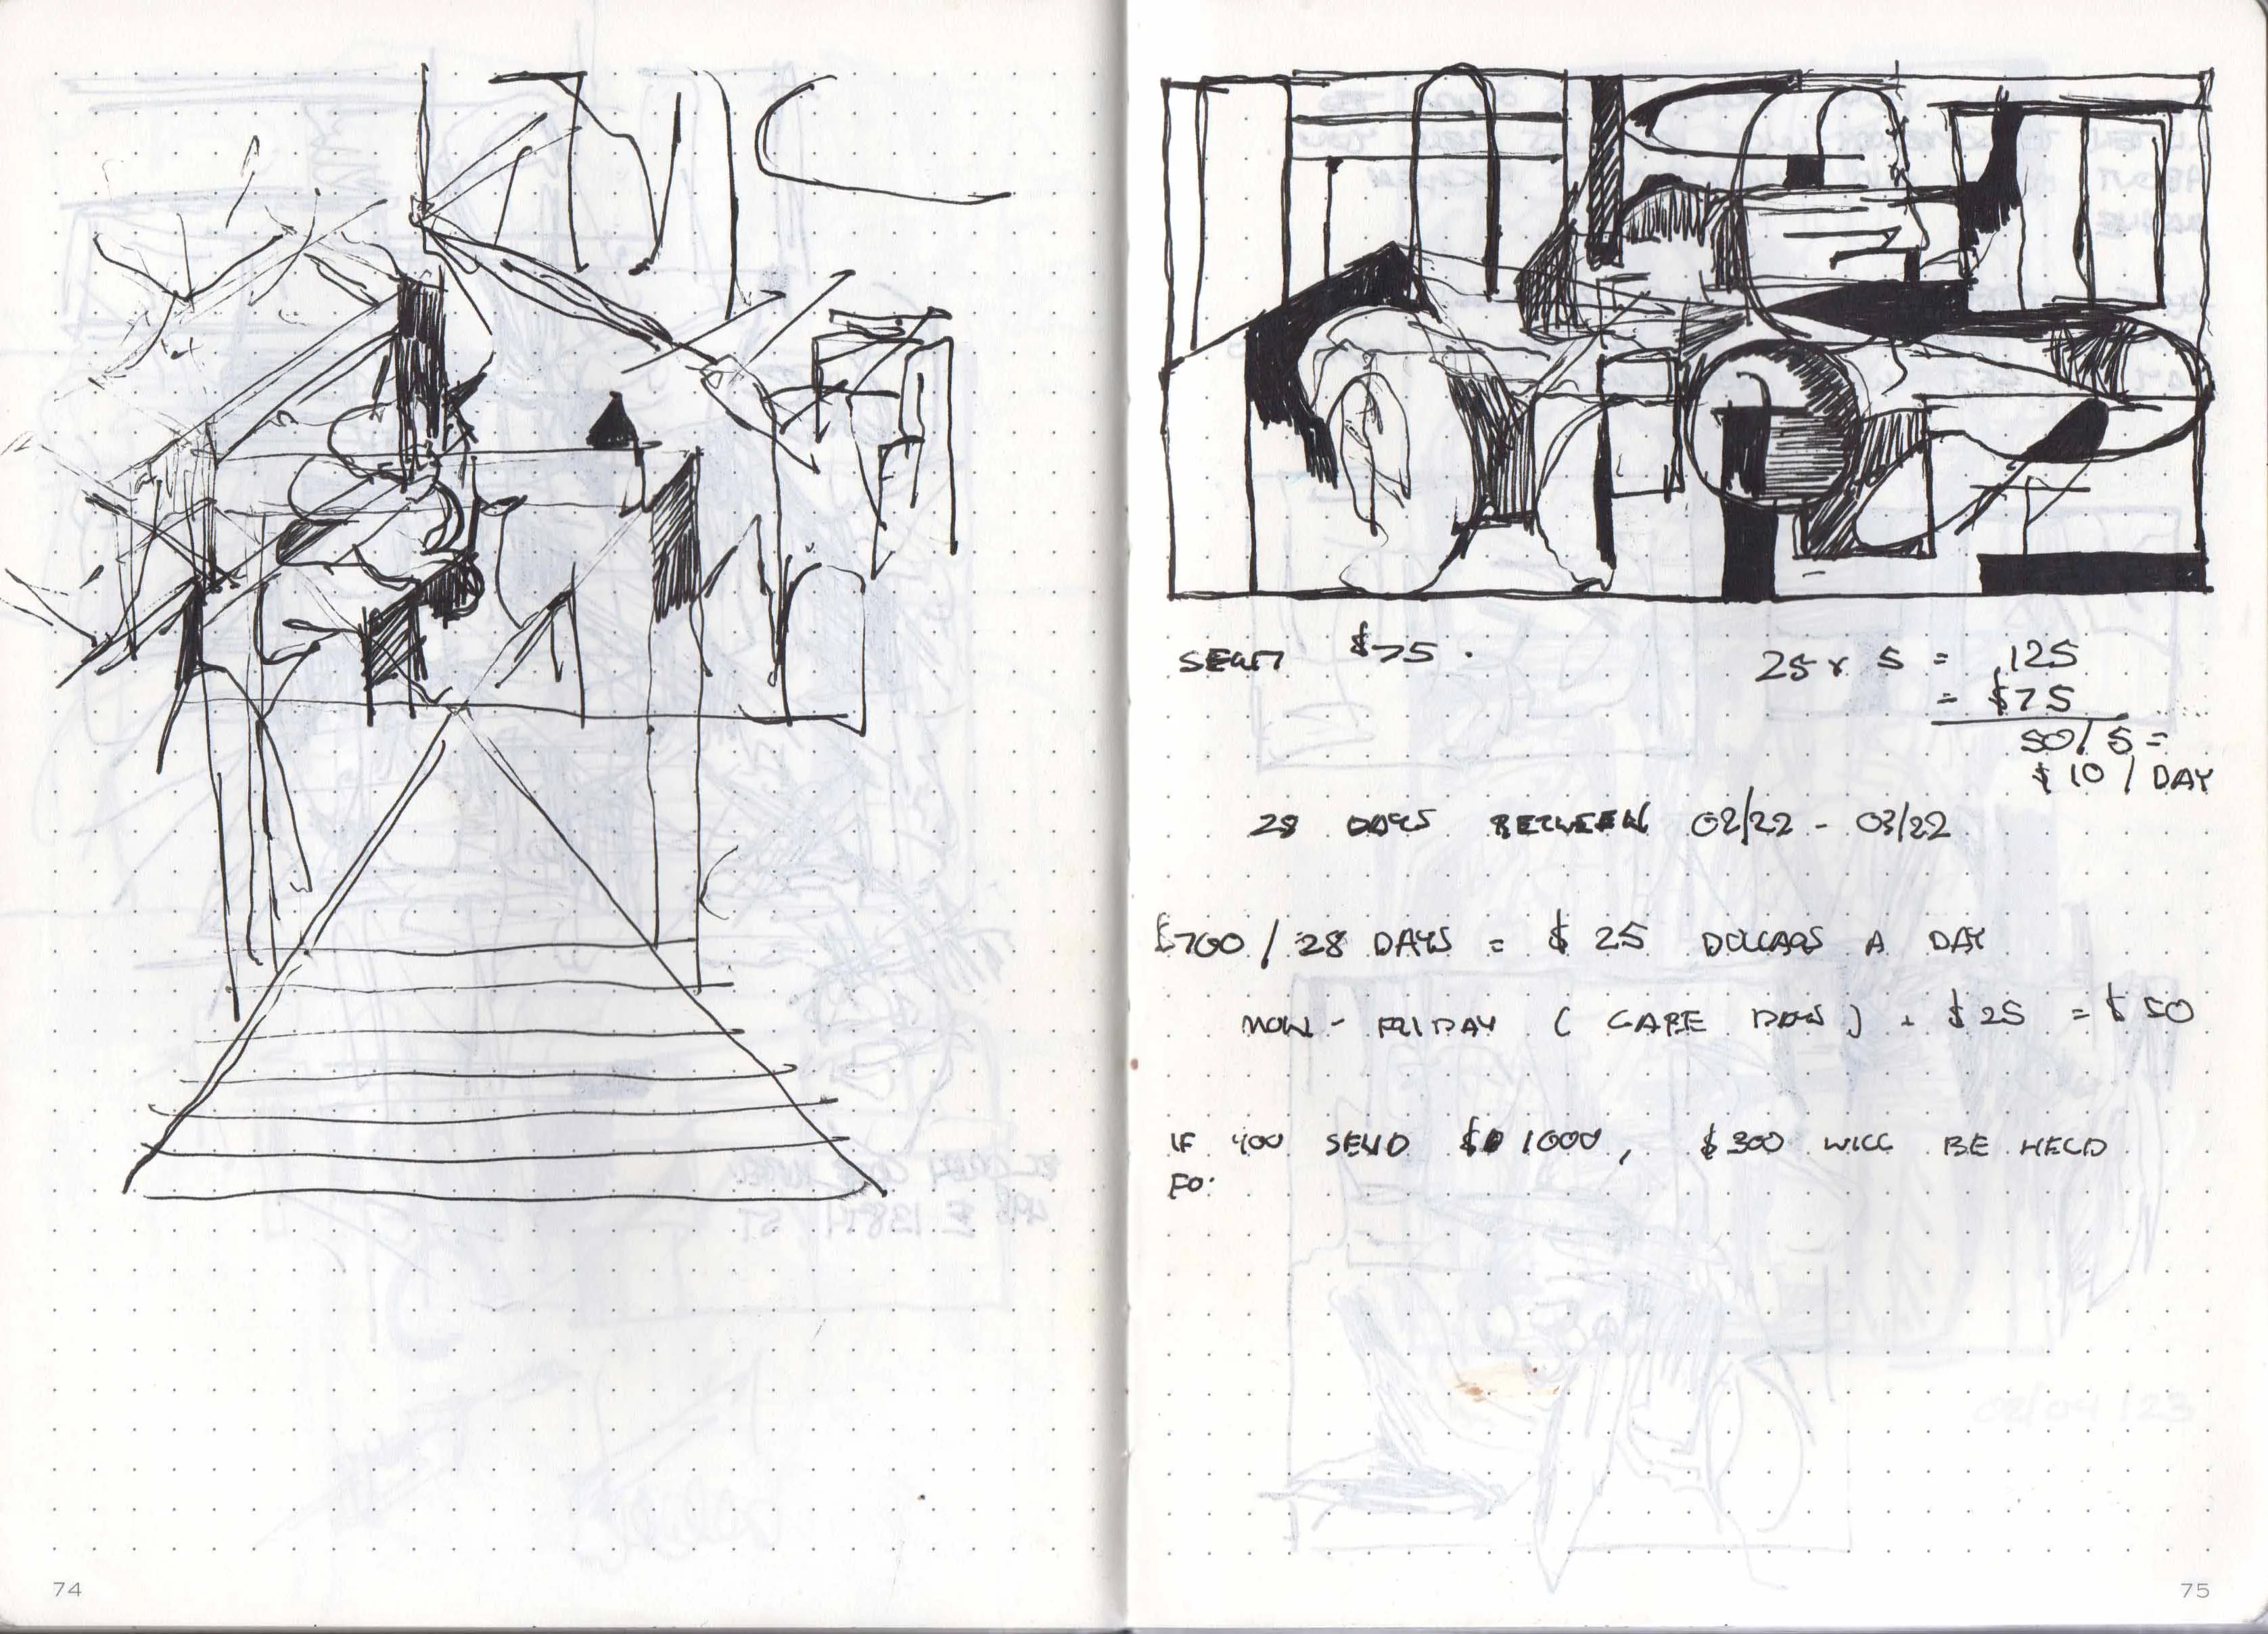 $75.
25 x 5 = 125
= $75
50 / 5 =
$ 10 / DAY
28 DAYS BETWEEN 02/22 - 03/22
$700 / 28 DAYS = $ 25 DOLLARS A DAY
MON - FRIDAY ( CARE DAYS ) + $ 25 = $ 50
IF YOU SEND $ 1000, $300 WILL BE HELD
FO
EL COREY
496 E. 138TH ST
02/09/23
74
75